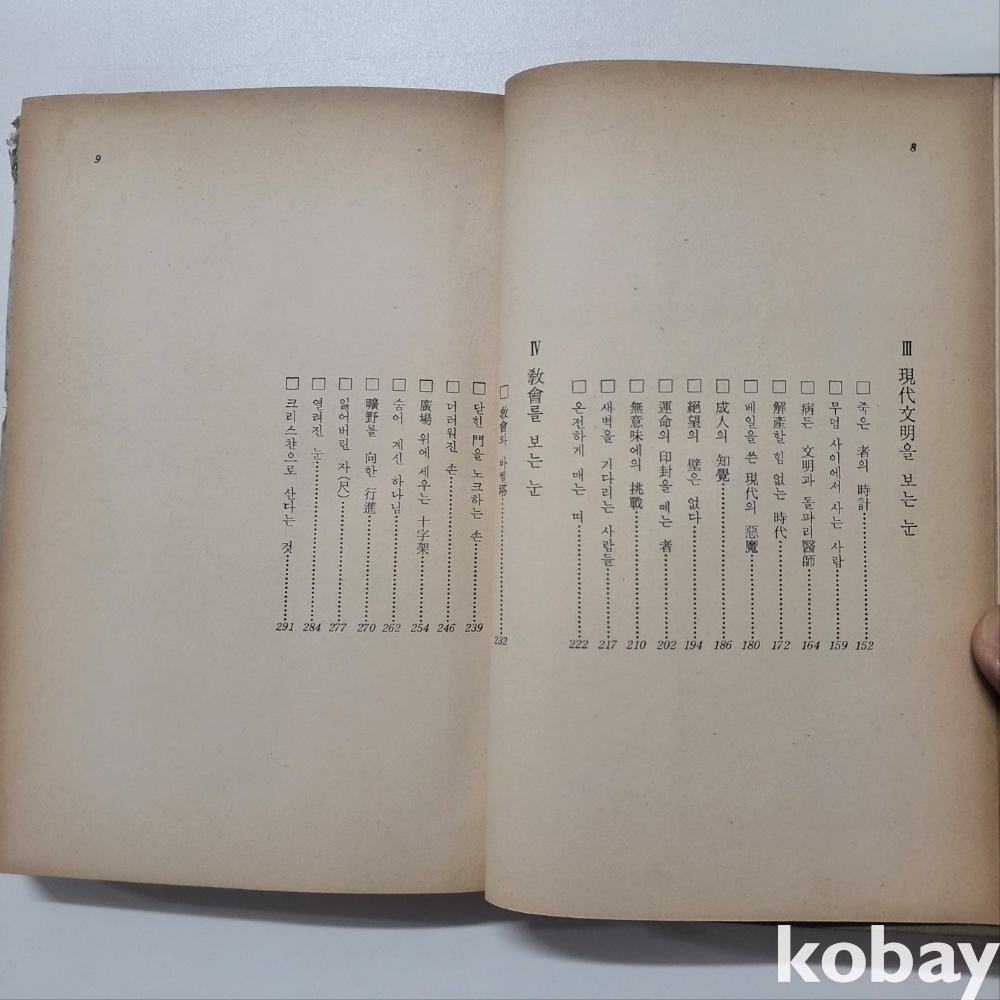 8
Ⅲ 現代文明을 보는 눈
□ 죽은 者의 時計 152
□ 무덤 사이에서 사는 사람 159
□ 病든 文明과 돌파리醫師 164
□ 解產할 힘 없는 時代 172
□ 베일을 쓴 現代의 惡魔 180
□ 成人의 知覺 186
□ 絕望의 壁은 없다 194
□ 運命의 印封을 떼는 者 202
□ 無意味에의 挑戰 210
□ 새벽을 기다리는 사람들 217
□ 온전하게 매는 띠 222
Ⅳ 敎會를 보는 눈
□ 敎會와 바벨塔 232
□ 닫힌 門을 노크하는 손 239
□ 더러워진 손 246
□ 廣場 위에 세우는 十字架 254
□ 숨어 계신 하나님 262
□ 曠野를 向한 行進 270
□ 잃어버린 자(尺) 277
□ 열려진 눈 284
□ 크리스챤으로 산다는 것 291
9
kobay